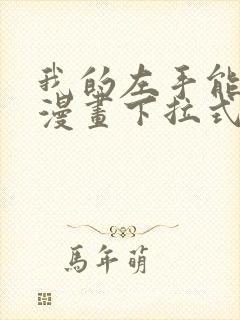 我的左手能
漫畫下拉式
馬年萌